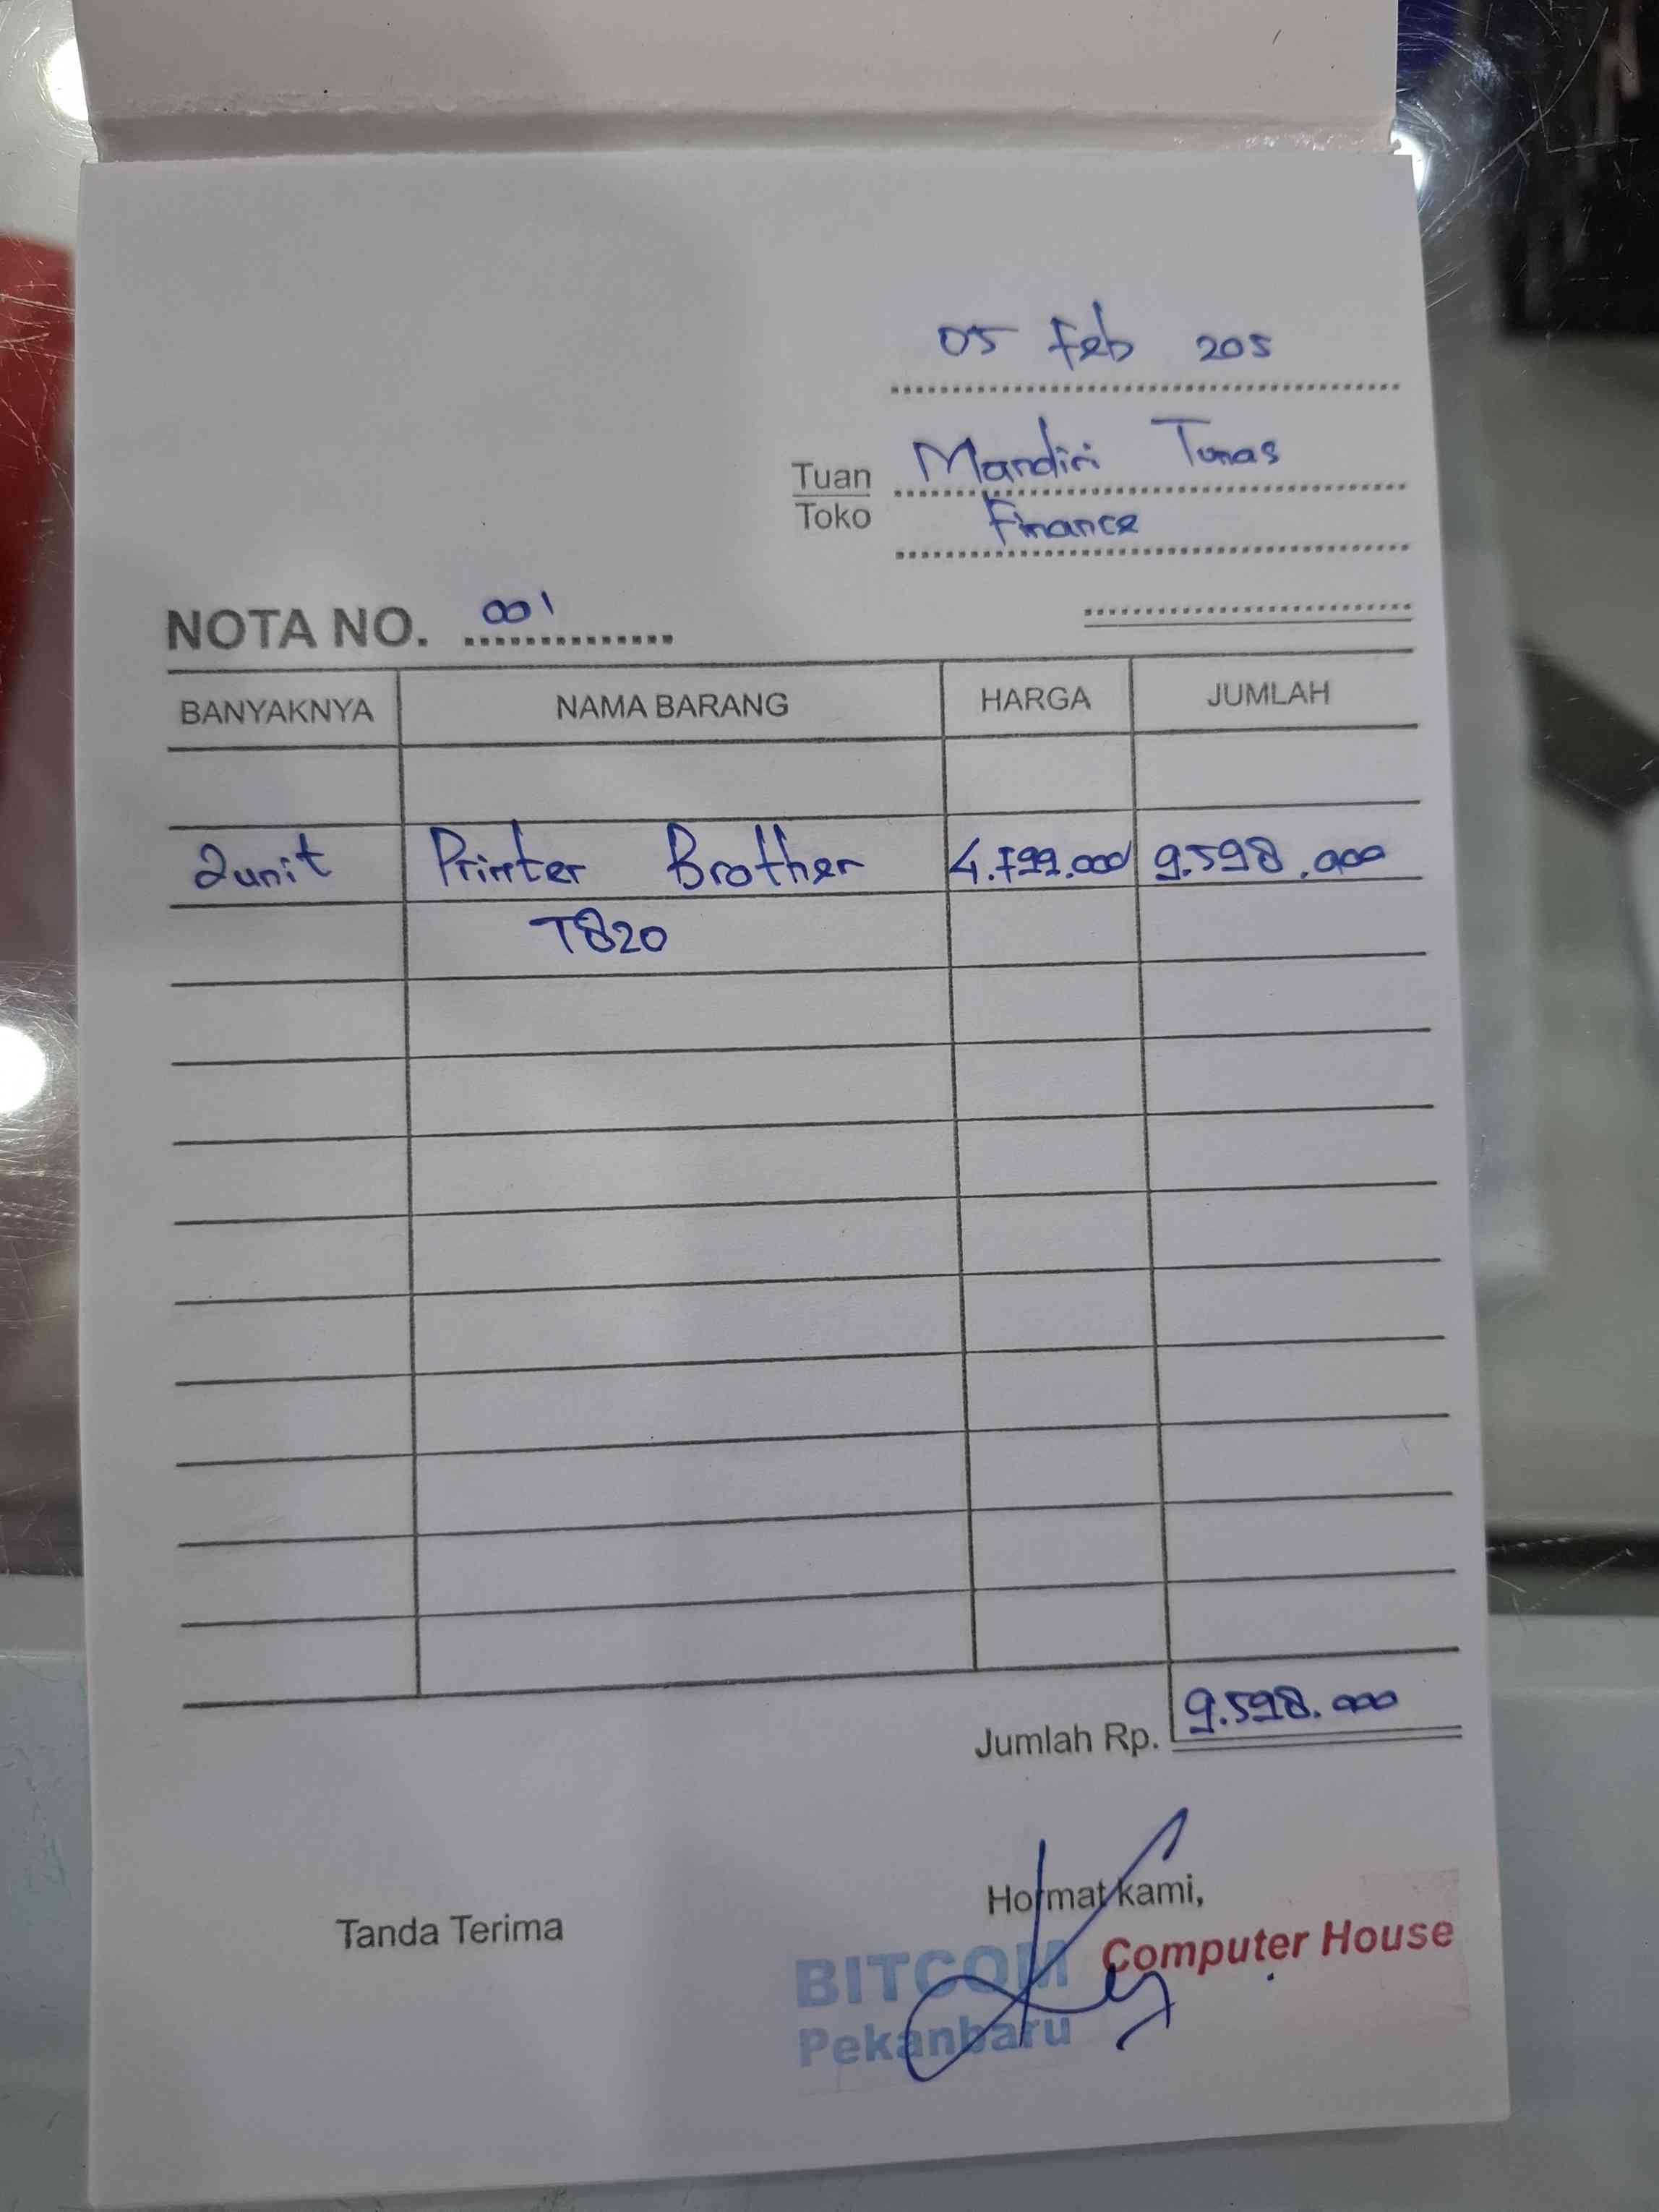 05 Feb 205
Tuan Mandiri Tunas
Toko Finance
NOTA NO. 001
BANYAKNYA NAMA BARANG HARGA JUMLAH
2unit Printer Brother 4.799.000 9.598.000
T820
Jumlah Rp. 9.598.000
Tanda Terima
Hormat kami,
BITCOM Computer House
Pekanbaru